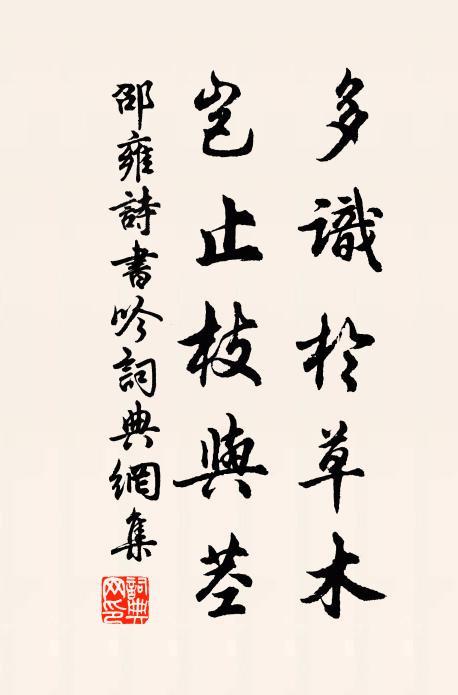 多識於草木
豈止枝與莖
邵雍詩書吟詞典網集
詞典網印